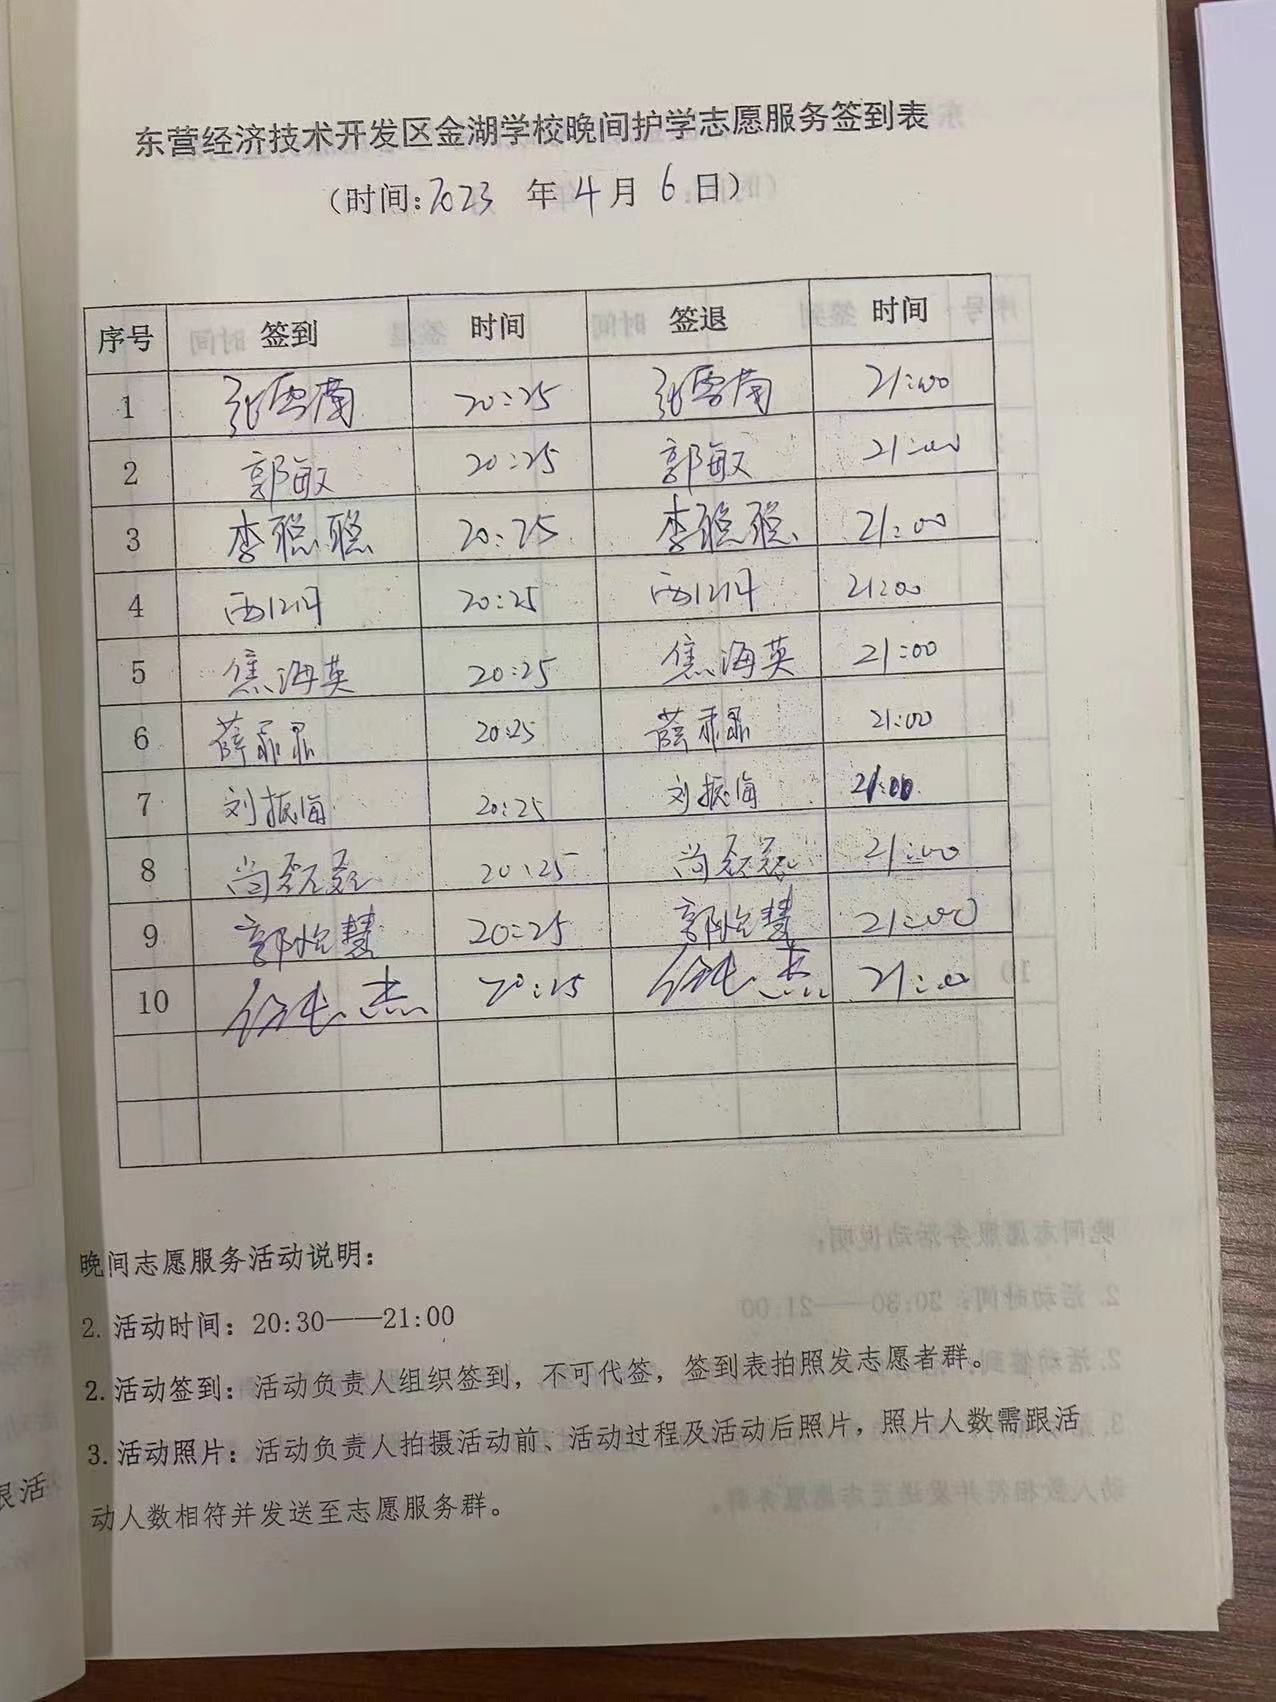 东营经济技术开发区金湖学校晚间护学志愿服务签到表
（时间:2023 年 4 月 6 日）
序号 签到 时间 签退 时间
1 张雪菊 20:25 张雪菊 21:00
2 郭敏 20:25 郭敏 21:00
3 李聪聪 20:25 李聪聪 21:00
4 20:25 21:00
5 焦海英 20:25 焦海英 21:00
6 薛 20:25 薛 21:00
7 刘振海 20:25 刘振海 21:00
8 尚磊磊 20:25 尚磊磊 21:00
9 郭怡慧 20:25 郭怡慧 21:00
10 杰 20:25 杰 21:00
晚间志愿服务活动说明：
2. 活动时间：20:30——21:00
2. 活动签到：活动负责人组织签到，不可代签，签到表拍照发志愿者群。
3. 活动照片：活动负责人拍摄活动前、活动过程及活动后照片，照片人数需跟活
动人数相符并发送至志愿服务群。
跟活